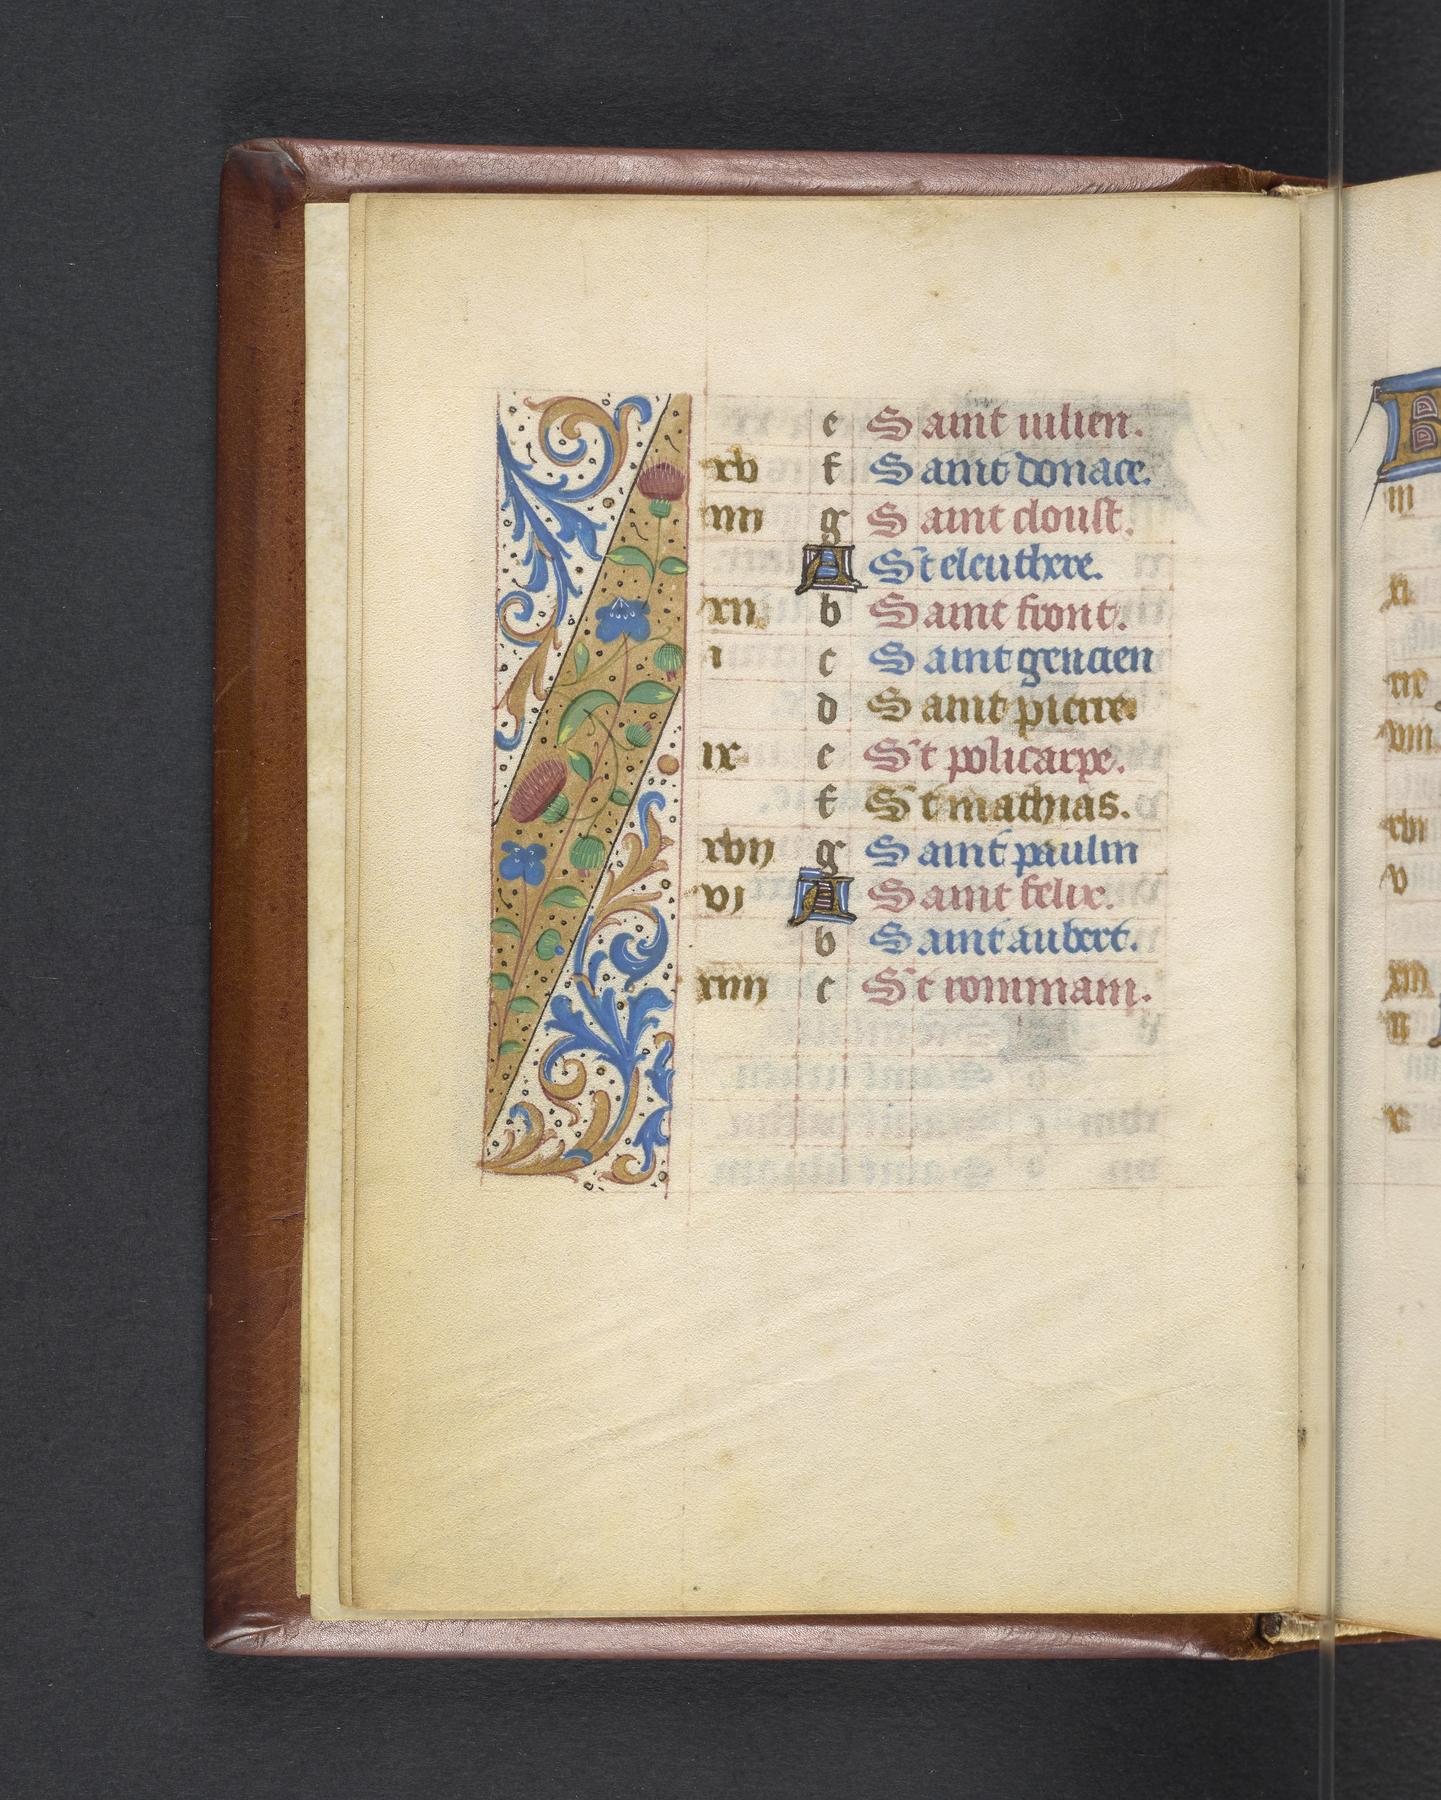 e Saint iulien.
xv f Saint donace.
iiii g Saint cloust.
A St eleuthere.
xii b Saint front.
i c Saint gencien
d Saint pierre.
ix e St policarpe.
f St mathias.
xvii g Saint paulin
vi A Saint felix.
b Saint aubert.
xiiii c St rommain.